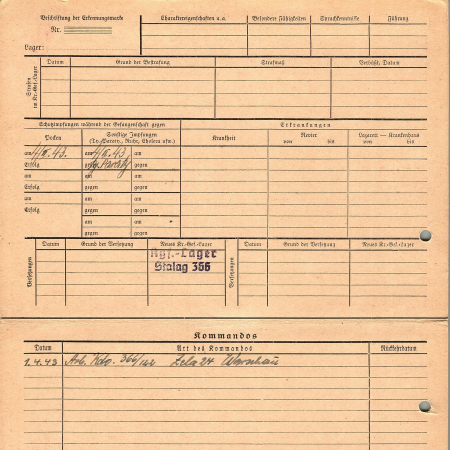 Beschriftung der Erkennungsmarke
Nr.
Lager:
Charaktereigenschaften u. a.
Besondere Fähigkeiten
Sprachkenntnisse
Führung
Strafen im Kr.-Gef.-Lager
Datum
Grund der Bestrafung
Strafmaß
Verbüßt, Datum
Schutzimpfungen während der Gefangenschaft gegen
Erkrankungen
Pocken
Sonstige Impfungen
(Ty.-Paraty., Ruhr, Cholera usw.)
Krankheit
Revier
von bis
Lazarett — Krankenhaus
von bis
am 43. am 43 am
Erfolg gegen gegen
am am am
Erfolg gegen gegen
am am am
Erfolg gegen gegen
am am
gegen gegen
Versetzungen
Datum
Grund der Versetzung
Neues Kr.-Gef.-Lager
Kgf.-Lager
Stalag 366
Versetzungen
Datum
Grund der Versetzung
Neues Kr.-Gef.-Lager
Kommandos
Datum
Art des Kommandos
Rückkehrdatum
1.4.43 Arb. Kdo. 366/142 Zela 24 Warschau